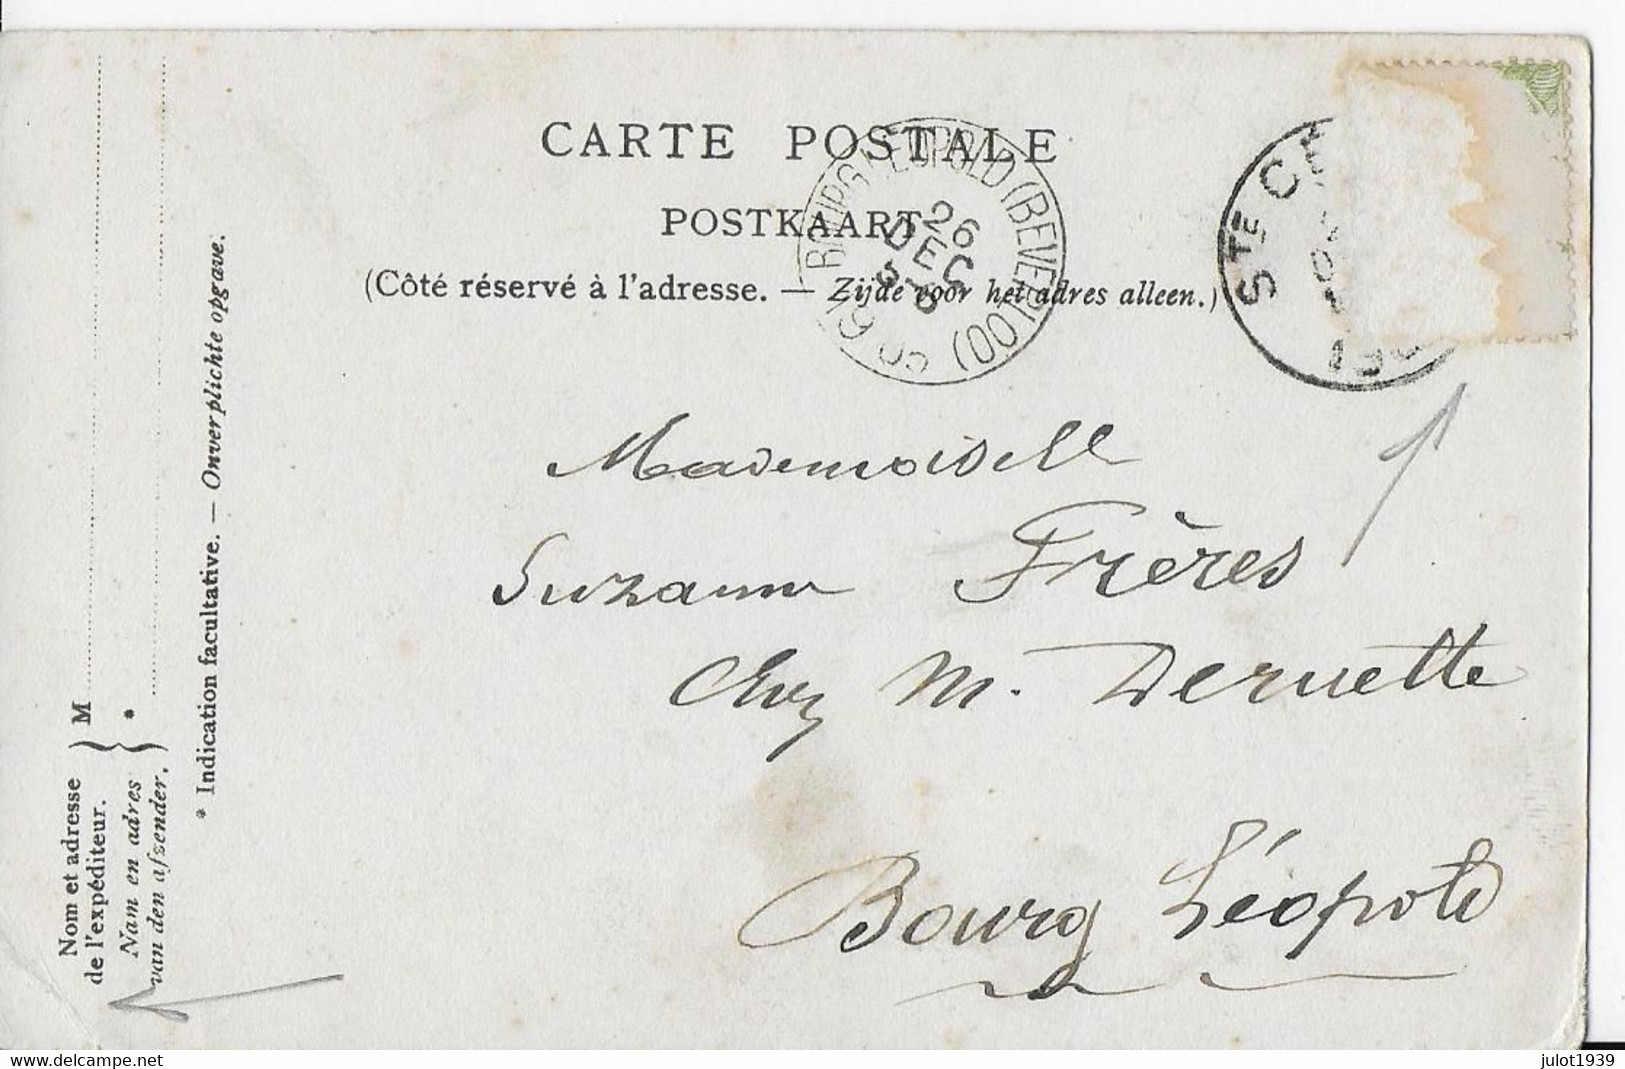 CARTE POSTALE
POSTKAART
(Côté réservé à l'adresse. — Zijde voor het adres alleen.)
BOURG-LÉOPOLD (BEVERLOO)
26
DEC
STE
Mademoisell
Suzanne Frères
Chez M. Deruette
Bourg Léopold
Nom et adresse
de l'expéditeur.
M
Nam en adres
van den afzender.
*
* Indication facultative. — Onverplichte opgave.
delcampe.net
julot1939